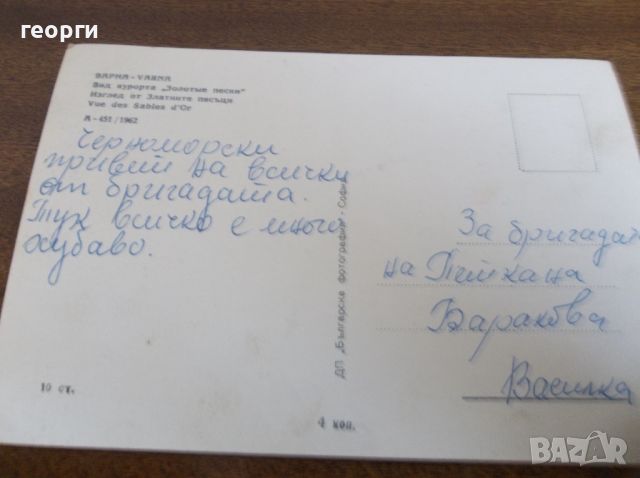 георги
ВАРНА - VARNA
Вид курорта „Золотые пески"
Изглед от Златните пясъци
Vue des Sables d'Or
А - 451 / 1962
Черноморски
привет на всички
от бригадата.
Тук всичко е много
хубаво.
ДП „Българска фотография" - София
За бригадата
на Пейкана
Варакова
Василка
10 ст.
4 коп.
BAZAR